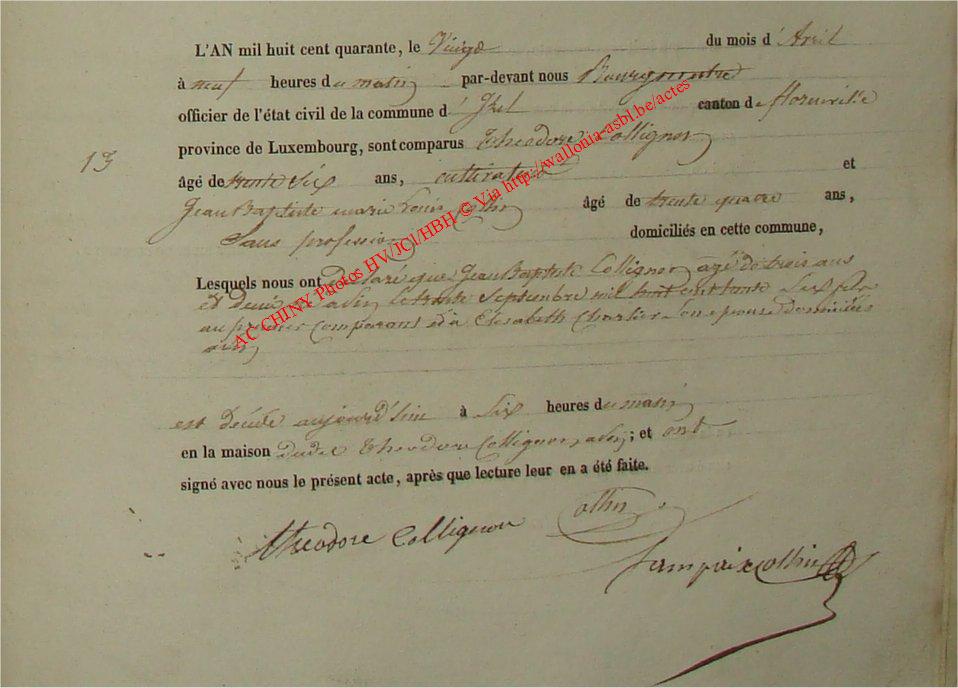 L'AN mil huit cent quarante, le Vingt du mois d' Avril
à neuf heures du matin par-devant nous Bourgmestre
officier de l'état civil de la commune d' Izel canton de florenville
province de Luxembourg, sont comparus Théodore Collignon
13
âgé de trente six ans, cultivateur et
Jean Baptiste marie Louis Othin âgé de trente quatre ans,
Sans profession domiciliés en cette commune,
Lesquels nous ont déclaré que Jean Baptiste Collignon agé de trois ans
né à Izel le trente Septembre mil huit cent trente Six fils
au premier Comparant et à Elisabeth Charlier Son epouse domiciliés
AC CHINY Photos HV/JCl/HBH © Via http://wallonia-asbl.be/actes
est décédé aujourd'hui à Six heures du matin
en la maison dudit Théodore Collignon, à Izel; et ont
signé avec nous le présent acte, après que lecture leur en a été faite.
théodore Collignon Othin